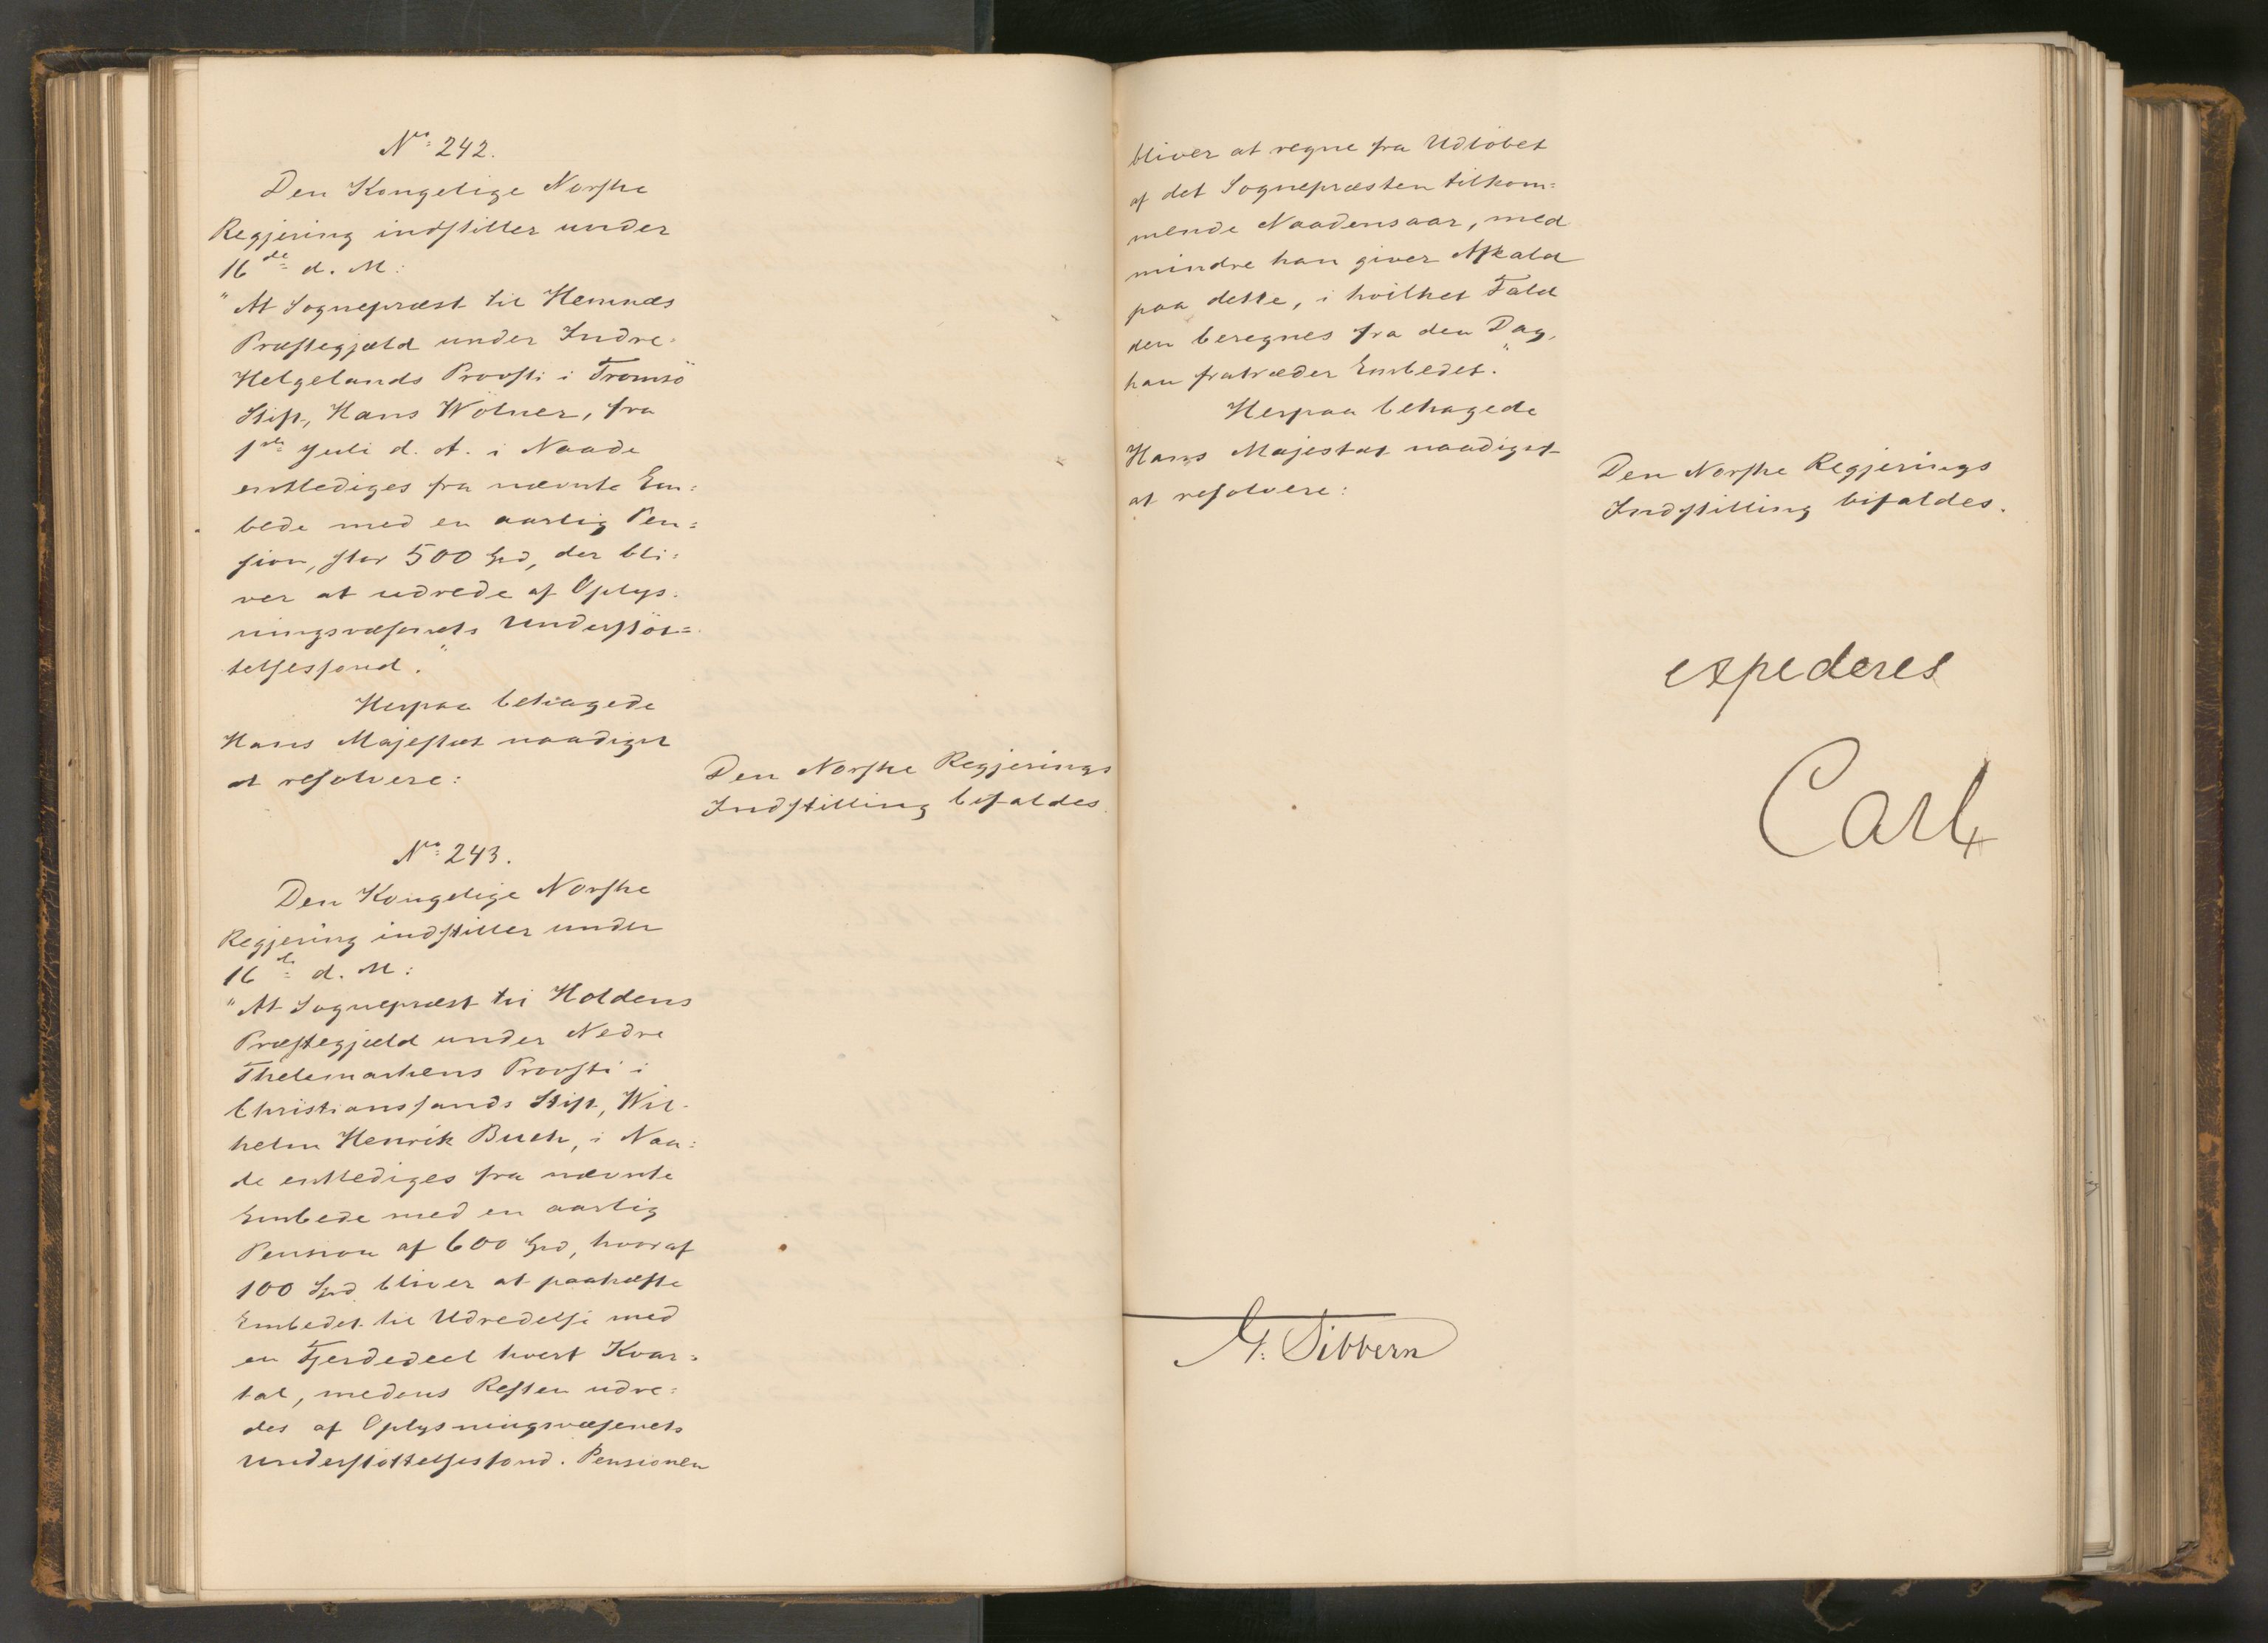 No: 242.
Den Kongelige Norske
Regjering indstiller under
16de d. M:
"At Sognepræst til Hemnæs
Præstegjæld under Indre
Helgelands Provsti i Tromsö
Stift, Hans Wölner, fra
1ste Juli d. A. i Naade
entlediges fra nævnte Em=
bede med en aarlig Pen=
sion, stor 500 Spd, der bli=
ver at udrede af Oplys=
ningsvæsenets Understöt=
telsesfond."
Herpaa behagede
Hans Majestæt naadigst
at resolvere:
Den Norske Regjerings
Indstilling bifaldes.
No: 243.
Den Kongelige Norske
Regjering indstiller under
16de d. M:
"At Sognepræst til Holdens
Præstegjæld under Nedre
Thelemarkens Provsti i
Christianssands Stift, Wil-
helm Henrik Buch, i Naa=
de entlediges fra nævnte
Embede med en aarlig
Pension af 600 Spd, hvoraf
100 Spd bliver at paahæfte
Embedet til Udredelse med
en Fjerdedeel hvert Kvar=
tal, medens Resten udre=
des af Oplysningsvæsenets
Understöttelsesfond. Pensionen
bliver at regne fra Udlöbet
af det Sognepræsten tilkom=
mende Naadensaar, med
mindre han giver Afkald
paa dette, i hvilket Fald
den beregnes fra den Dag,
han fratræder Embedet."
Herpaa behagede
Hans Majestæt naadigst
at resolvere:
Den Norske Regjerings
Indstilling bifaldes.
expederes
Carl
G. Sibbern